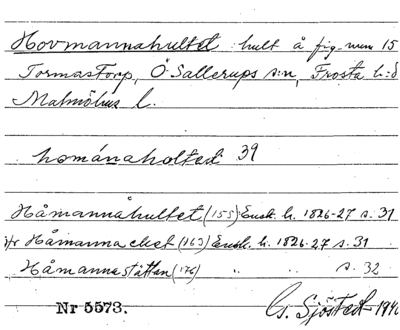 Hovmannahultet hult å fig. num 15
Tormastorp, Ö. Sallerups s:n, Frosta h:d
Malmöhus l.
hománaholted 39
Håmannåhultet (155) Ensk. h. 1826-27 s. 31
Håmanna (163) Ensk. h. 1826-27 s. 31
Håmannastättan (176) " " s. 32
Nr 5573. G. Sjöstedt 194